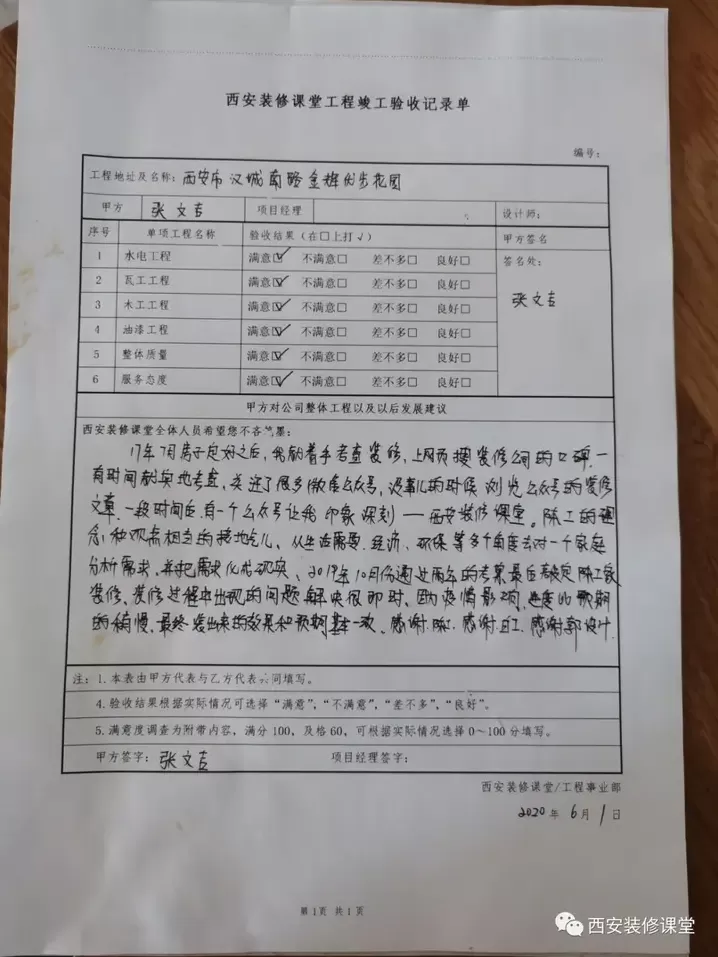 西安装修课堂工程竣工验收记录单
编号：
工程地址及名称：西安市汉城南路金辉世步花园
甲方 张文吉 项目经理 设计师：
序号 单项工程名称 验收结果（在□上打√） 甲方签名
1 水电工程 满意☑ 不满意□ 差不多□ 良好□ 签名处：
2 瓦工工程 满意☑ 不满意□ 差不多□ 良好□
3 木工工程 满意☑ 不满意□ 差不多□ 良好□ 张文吉
4 油漆工程 满意☑ 不满意□ 差不多□ 良好□
5 整体质量 满意☑ 不满意□ 差不多□ 良好□
6 服务态度 满意☑ 不满意□ 差不多□ 良好□
甲方对公司整体工程以及以后发展建议
西安装修课堂全体人员希望您不吝笔墨：
17年7月房子定好之后，我就着手考查装修，上网页搜装修公司的口碑，一
有时间就实地考查，关注了很多微信公众号，没事儿的时候浏览公众号的装修
文章，一段时间后有一个公众号让我印象深刻——西安装修课堂。陈工的理
念和观点相当的接地气儿，从生活需要、经济、环保等多个角度去对一个家庭
分析需求，并把需求化成现实、2019年10月份通过两年的考察最后敲定陈工家
装修，装修过程中出现的问题解决很即时，因为疫情影响，进度比预期
的稍慢，最终装出来的效果和预期基本一致。感谢陈工，感谢 工，感谢郭设计
注：1.本表由甲方代表与乙方代表共同填写。
4.验收结果根据实际情况可选择“满意”，“不满意”，“差不多”，“良好”。
5.满意度调查为附带内容，满分100，及格60，可根据实际情况选择0～100分填写。
甲方签字：张文吉 项目经理签字：
西安装修课堂/工程事业部
2020年6月1日
第1页 共1页
西安装修课堂